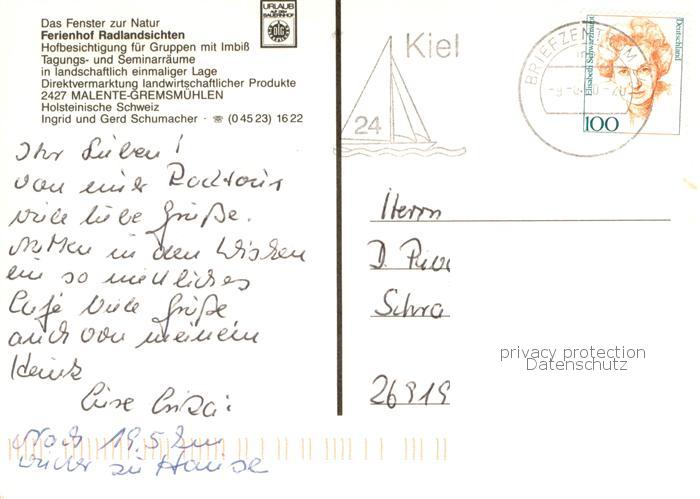 Das Fenster zur Natur
Ferienhof Radlandsichten
Hofbesichtigung für Gruppen mit Imbiß
Tagungs- und Seminarräume
in landschaftlich einmaliger Lage
Direktvermarktung landwirtschaftlicher Produkte
2427 MALENTE-GREMSMÜHLEN
Holsteinische Schweiz
Ingrid und Gerd Schumacher · ☏ (0 45 23) 16 22
URLAUB
AUF DEM
BAUERNHOF
DLG
Kiel
24
BRIEFZENTRUM
Elisabeth Schwarzhaupt
Deutschland
100
Ihr Lieben!
von einer Radtour
viele liebe Grüße.
Mitten in den Wiesen
ein so niedliches
Café Viele Grüße
auch von meinem
Heinz
Eure
Nach 19,5 km
wieder zu Hause
Herrn
D.
26919
privacy protection
Datenschutz